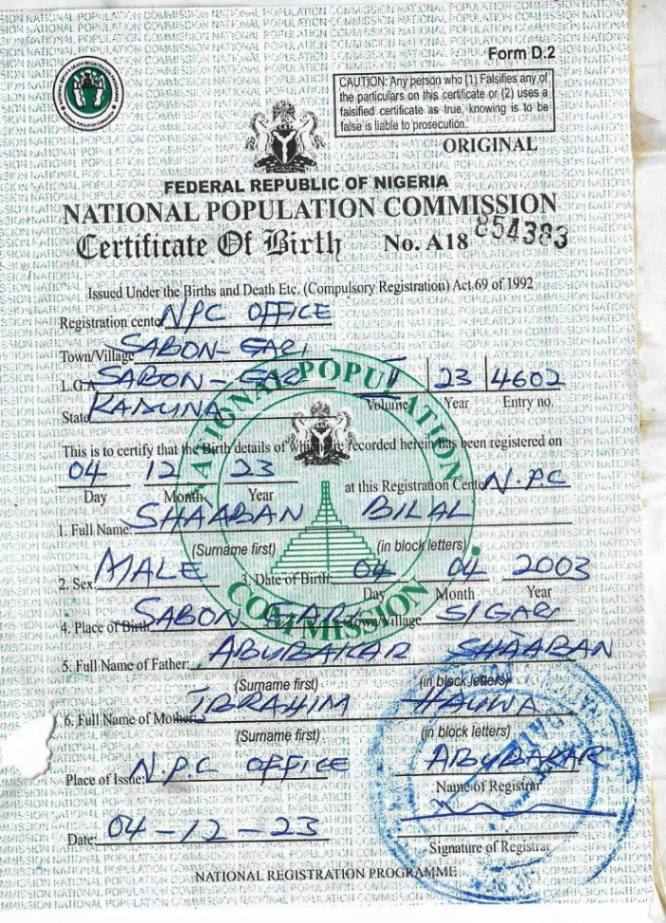 Form D.2
CAUTION: Any person who (1) Falsifies any of
the particulars on this certificate or (2) uses a
falsified certificate as true, knowing is to be
false is liable to prosecution.
ORIGINAL
FEDERAL REPUBLIC OF NIGERIA
NATIONAL POPULATION COMMISSION
Certificate Of Birth No. A18 854383
Issued Under the Births and Death Etc. (Compulsory Registration) Act.69 of 1992
Registration centre NPC OFFICE
Town/Village SABON-GARI
L.G.A SABON-GARI 23 4602
Volume Year Entry no.
State KADUNA
This is to certify that the Birth details of Which are recorded herein has been registered on
04 12 23 at this Registration Centre N.P.C
Day Month Year
1. Full Name: SHAABAN BILAL
(Surname first) (in block letters)
2. Sex: MALE 3. Date of Birth: 04 04 2003
Day Month Year
4. Place of Birth: SABON GARI Town/Village S/GARI
5. Full Name of Father: ABUBAKAR SHAABAN
(Surname first) (in block letters)
6. Full Name of Mother: IBRAHIM HAUWA
(Surname first) (in block letters)
Place of Issue: N.P.C OFFICE ABUBAKAR
Name of Registrar
Date: 04-12-23
Signature of Registrar
NATIONAL REGISTRATION PROGRAMME
NATIONAL POPULATION COMMISSION